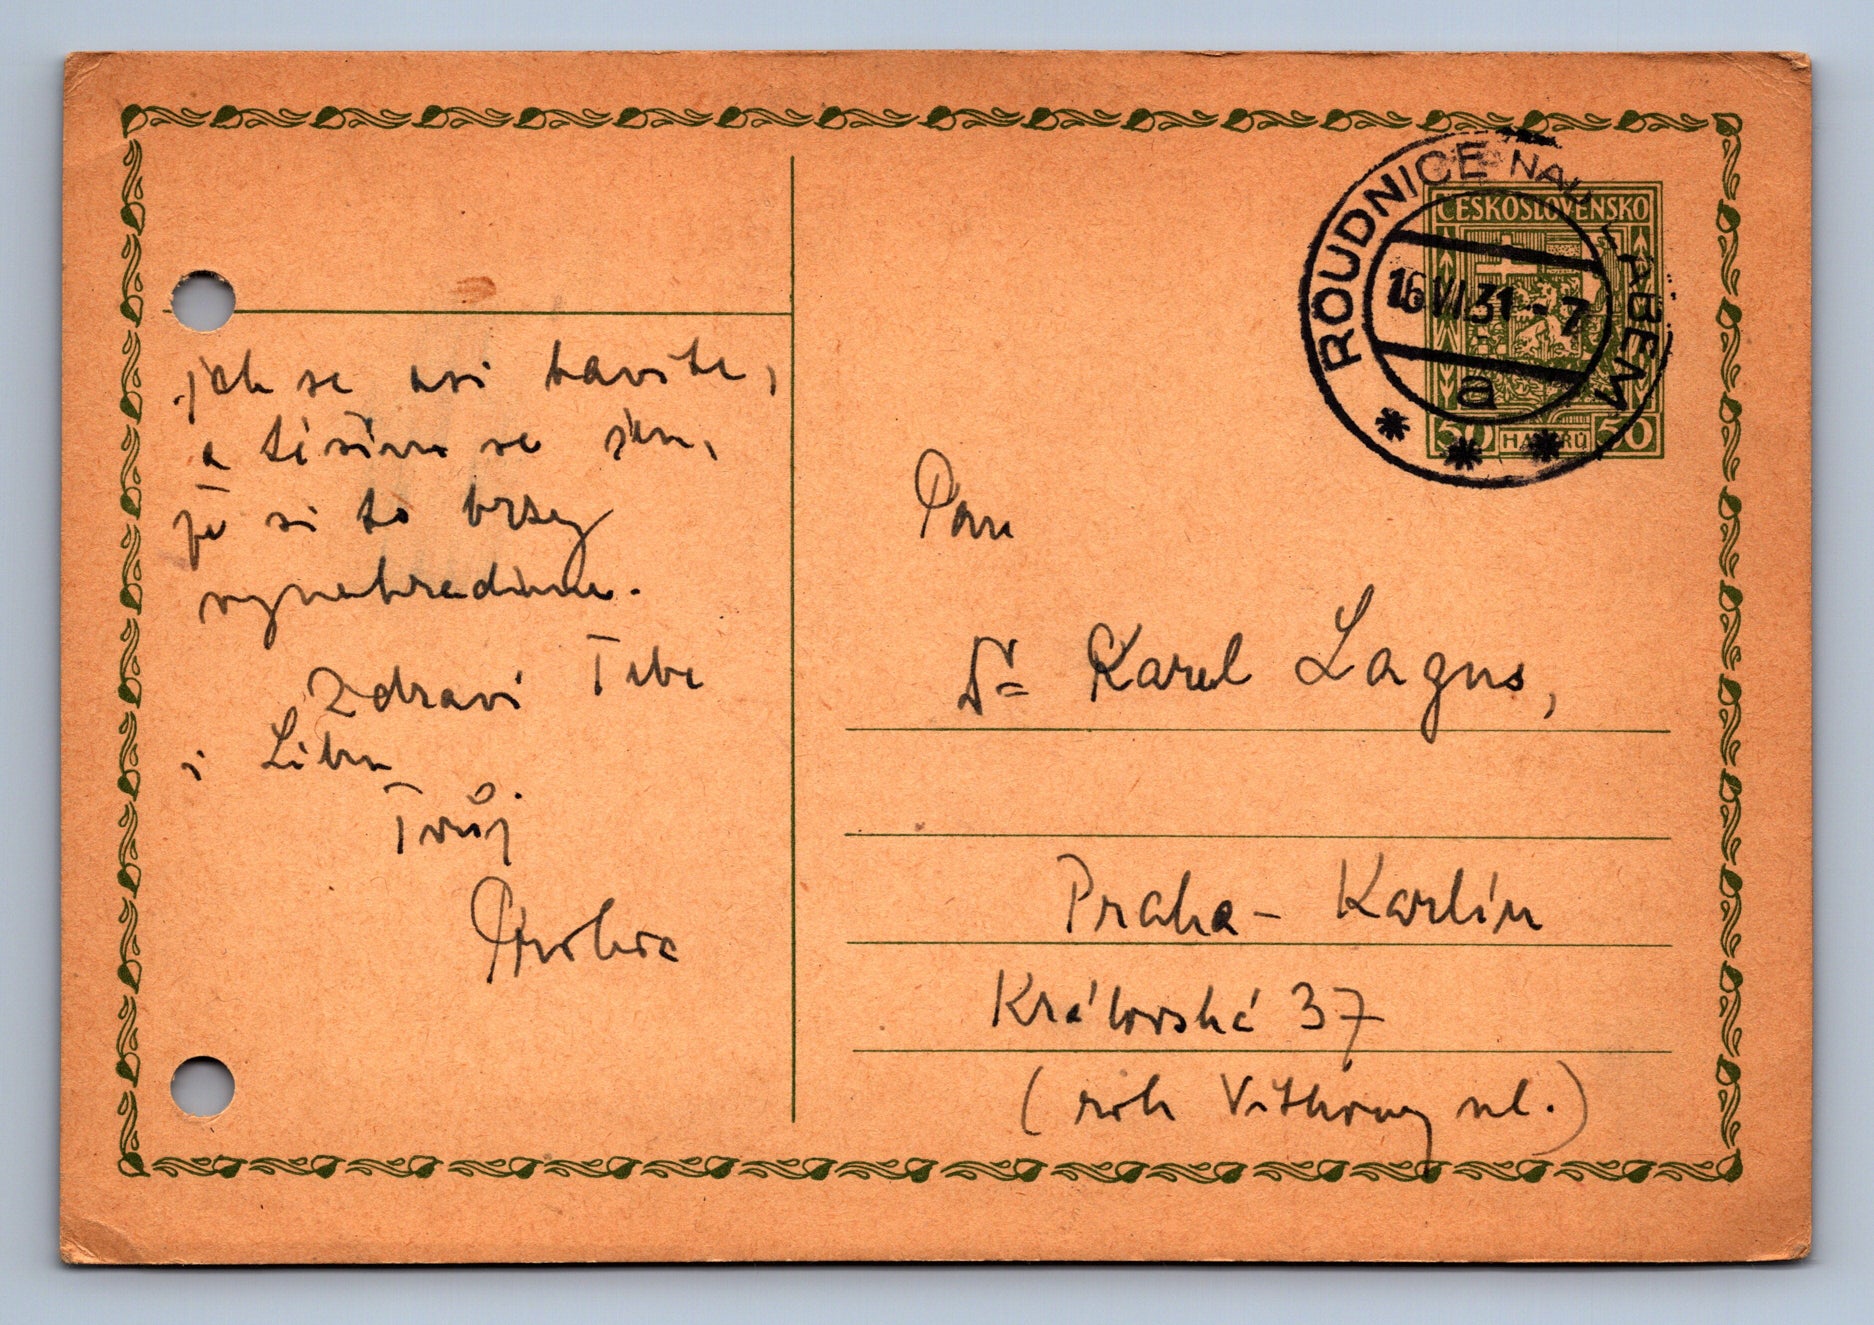 jak se asi bavíte,
a těšíme se jen,
že si to brzy
vynahradíme.
Zdraví Tebe
i Libu
Tvůj
ROUDNICE NAD LABEM
16 VI 31 - 7
a
ČESKOSLOVENSKO
50 HALÉŘŮ 50
Pan
Dr Karel Lagus,
Praha - Karlín
Královská 37
(roh Vítkovy ul.)